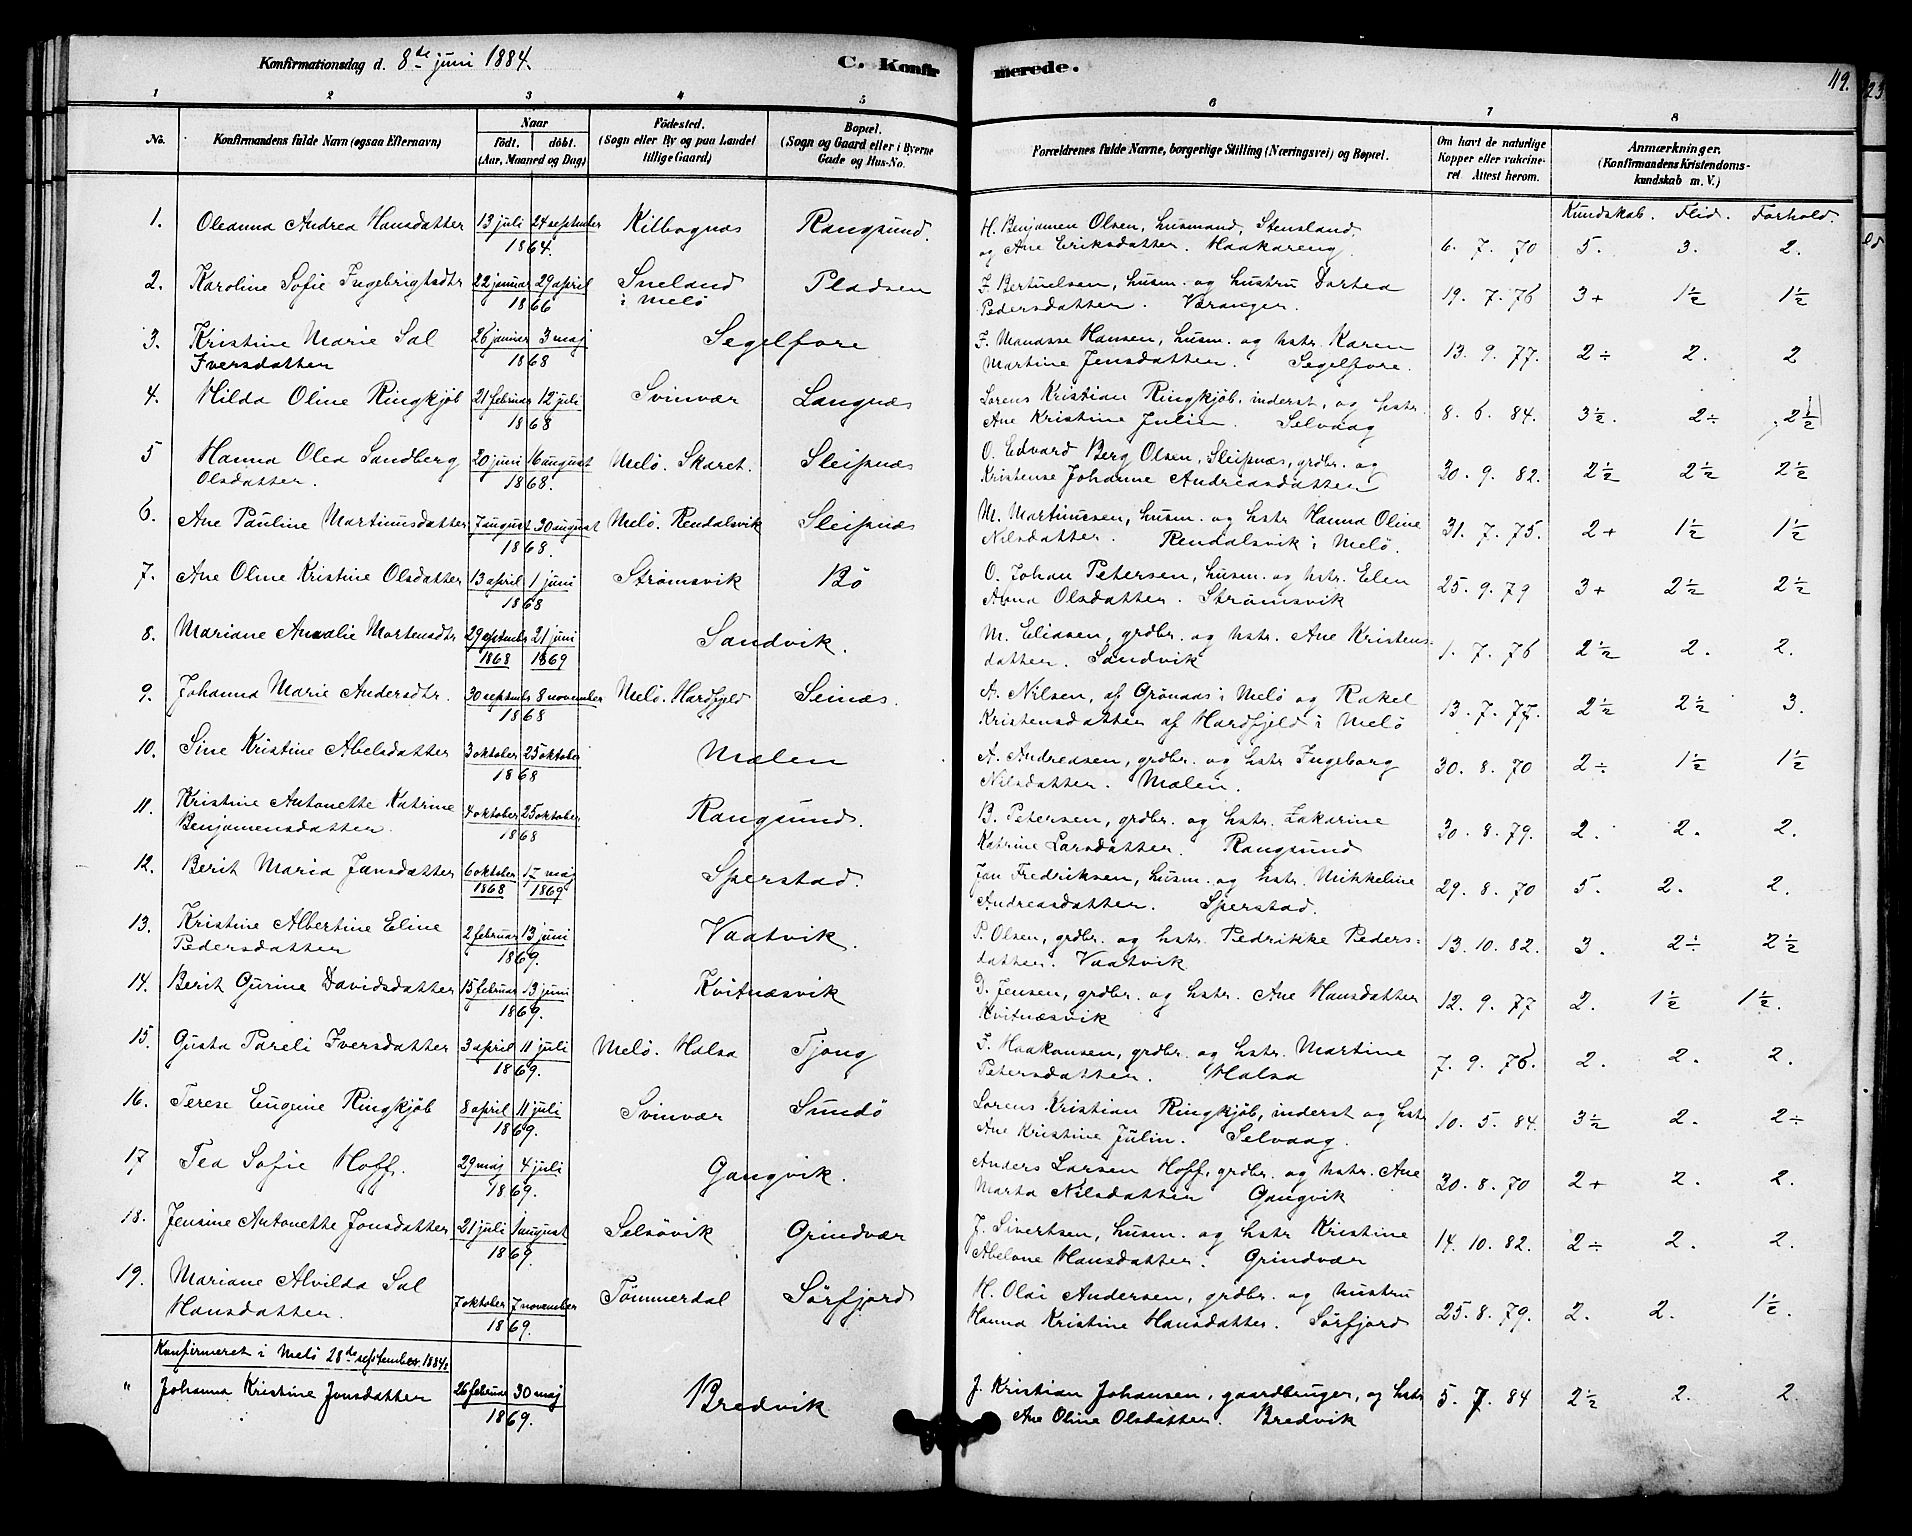 Konfirmationsdag d. 8de juni 1884.
C. Konfirmerede.
119.
1 2 3 4 5 6 7 8
No.
Konfirmandens fulde Navn (ogsaa Efternavn)
Naar
födt. döbt.
(Aar, Maaned og Dag)
Födested.
(Sogn eller By og paa Landet
tillige Gaard)
Bopæl.
(Sogn og Gaard eller i Byerne
Gade og Hus-No.
Forældrenes fulde Navne, borgerlige Stilling (Næringsvei) og Bopæl.
Om havt de naturlige
Kopper eller vakcine-
ret Attest herom.
Anmærkninger.
(Konfirmandens Kristendoms-
kundskab m. V.)
Kundskab. Flid. Forhold.
1. Oleanna Andrea Hansdatter 13 juli 24 september 1864. Kilbognæs Rangsund. H. Benjamen Olsen, husmand, Stensland,
og Ane Eriksdatter. Haakareng. 6. 7. 70 5. 3. 2.
2. Karoline Sofie Ingebrigtsdtr 22 januar 29 april 1866 Sneland
i Melö Pladsen I. Bertuelsen, husm. og hustru Dortea
Pedersdatter. Varanger. 19. 7. 76 3+ 1½ 1½
3. Kristine Marie Sal
Iversdatter 26 januar 3 maj 1868 Segelfore I. Manasse Hansen, husm. og hstr. Karen
Martine Jensdatter. Segelfore. 13. 9. 77. 2÷ 2. 2
4. Hilda Oline Ringkjöb 21 februar 12 juli 1868 Svinvær Langnæs Lorens Kristian Ringkjöb, inderst, og hstr.
Ane Kristine Julin. Selvaag 8. 6. 84. 3½. 2÷ 2½
5 Hanna Olea Sandberg
Olsdatter. 20 juni 16 august 1868. Melö. Skaret. Sleipnæs O. Edvard Berg Olsen, Sleipnæs, grdbr. og
Kristense Johanne Andreasdatter 30. 9. 82. 2½ 2½ 2½
6. Ane Pauline Martinusdatter 7 august 30 august 1868. Melö. Rendalsvik Sleipnæs M. Martinussen, husm. og hstr Hanna Oline
Nilsdatter. Rendalsvik i Melö. 31. 7. 75. 2+ 1½ 1½
7. Ane Oline Kristine Olsdatter 13 april 1 juni 1868 Strömsvik Bö O. Johan Petersen, husm. og hstr. Elen
Anna Olsdatter. Strömsvik 25. 9. 79 3+ 2½ 2½
8. Mariane Amalie Mortensdtr 29 septmbr 1868 21 juni 1869 Sandvik. M. Eliasen, grdbr. og hstr. Ane Kristens-
datter. Sandvik 1. 7. 76 2½ 2. 2.
9. Johanna Marie Andersdtr. 30 septmbr 8 november 1868 Melö. Hardfjeld Seinæs. A. Nilsen, af Grönaas i Melö og Rakel
Kristensdatter af Hardfjeld i Melö 13. 7. 77. 2½ 2½ 3.
10. Sine Kristine Abelsdatter 3 oktober 25 oktober 1868 Mælen A. Andreasen, grdbr. og hstr Ingeborg
Nilsdatter. Mælen. 30. 8. 70 2÷ 1½ 1½
11. Kristine Antonette Katrine
Benjamensdatter. 4 oktober 25 oktober 1868 Rangsund. B. Petersen, grdbr. og hstr. Zakarine
Katrine Larsdatter. Rangsund 30. 8. 79. 2. 2. 2.
12. Berit Maria Jansdatter 6 oktober 1868 17 maj 1869 Sperstad. Jan Fredriksen, husm. og hstr. Mikkeline
Andreasdatter. Sperstad. 29. 8. 70 5. 2. 2.
13. Kristine Albertine Eline
Pedersdatter 2 februar 13 juni 1869. Vaatvik. P. Olsen, grdbr. og hstr. Pedrikke Peders-
datter. Vaatvik 13. 10. 82. 3. 2÷ 2½
14. Berit Gurine Davidsdatter 15 februar 13 juni 1869. Kvitnæsvik D. Jensen, grdbr. og hstr. Ane Hansdatter
Kvitnæsvik 12. 9. 77 2. 1½ 1½.
15. Gusta Pareli Iversdatter 3 april 11 juli 1869. Melö. Halsa Tjong I. Haakonsen, grdbr. og hstr. Martine
Petersdatter. Halsa 7. 9. 76. 2. 2. 2.
16. Terese Eugenie Ringkjöb 8 april 11 juli 1869. Svinvær Sundö Lorens Kristian Ringkjöb, inderst og hstr
Ane Kristine Julin. Selvaag. 10. 5. 84. 3½ 2. 2÷
17. Tea Sofie Hoff. 29 maj 4 juli 1869. Gangvik. Anders Larsen Hoff, grdbr. og hstr. Ane
Marta Nilsdatter Gangvik 30. 8. 70 2+ 2. 2.
18. Jensine Antonette Jonsdatter 21 juli 1 august 1869. Selsövik Grindvær J. Sivertsen, husm. og hstr Kristine
Abelone Hansdatter. Grindvær 14. 10. 82. 2÷ 2. 2.
19. Mariane Alvilda Sal
Hansdatter. 7 oktober 7 november 1869. Tömmerdal Sörfjord H. Olai Andersen, grdbr. og hustru
Hanna Kristine Hansdatter. Sörfjord 25. 8. 79. 2. 2. 1½.
Konfirmeret i Melö 28de september 1884:
" Johanna Kristine Jonsdatter 26 februar 30 maj 1869. Bredvik J. Kristian Johansen, gaardbruger, og hstr
Ane Oline Olsdatter. Bredvik 5. 7. 84 2½ 2. 2.